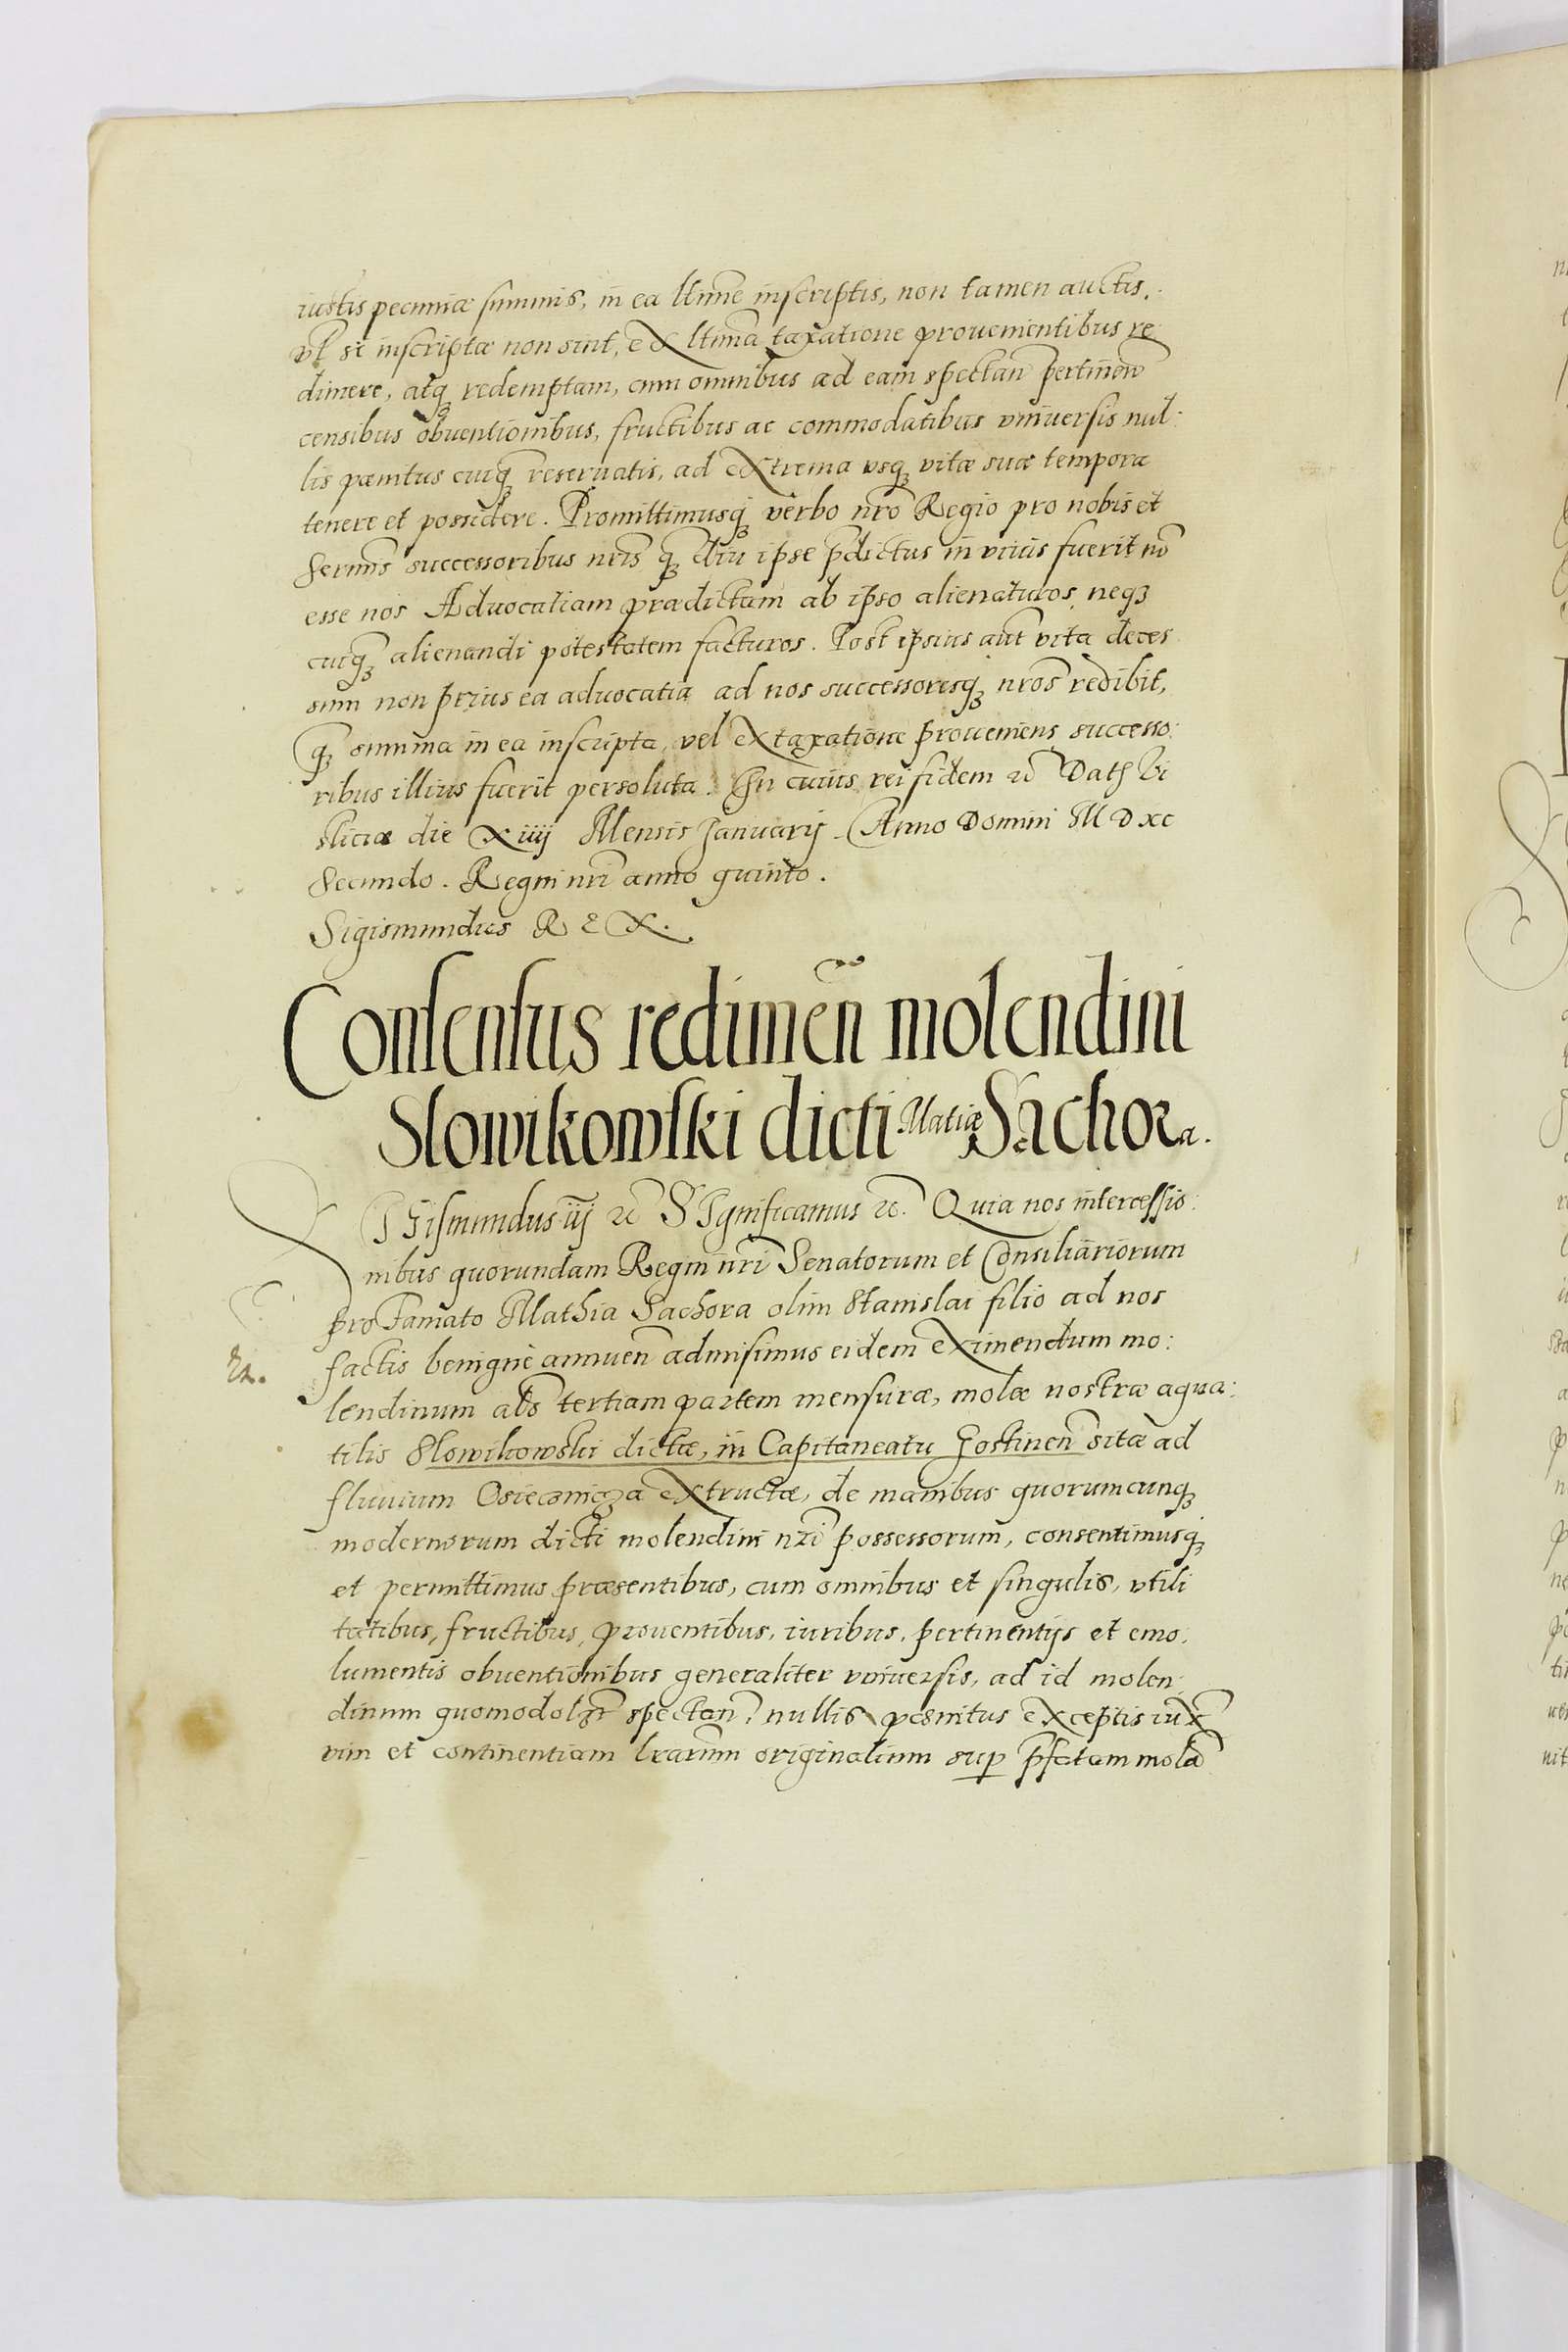 iustis pecuniæ summis, in ea ltime inscriptis, non tamen auctis,
vl si inscriptæ non sint, ex ltima taxatione prouenientibus re
dimere, atq redemptam, cum omnibus ad eam spectan pertinen
censibus obuentionibus, fructibus ac commodatibus vniuersis nul:
lis pænitus cuiq reseruatis, ad extrema vsq vitæ suæ tempora
tenere et possidere. Promittimusq verbo nro Regio pro nobis et
Sermis successoribus nris q diu ipse pdictus in viuis fuerit no
esse nos Aduocatiam prædictam ab ipso alienaturos, neq
cuiq alienandi potestatem facturos. Post ipsius aut vita deces
sum non prius ea aduocatia ad nos successoresq nros redibit,
q summa in ea inscripta, vel ex taxatione proueniens successo:
ribus illius fuerit persoluta. In cuius rei fidem &c Dat Vi
sliciæ die xiiij Mensis Januarij. Anno Domini M D xc
Secundo. Regni nri anno quinto.
Sigismundus REX.
Consensus redimen molendini
Slowikowski dicti Matiæ Sachora.
SIGismundus iij &c SIgnificamus &c. Quia nos intercessio:
nibus quorundam Regni nri Senatorum et Consiliariorum
pro Famato Mathia Sachora olim Stanislai filio ad nos
factis benigne annuen admisimus eidem eximendum mo:
lendinum abs tertiam partem mensuræ, molæ nostræ aqua:
tilis Slowikowski dictæ, in Capitaneatu Gostinen sitæ ad
fluuium Osiecznicza extructæ, de manibus quorumcunq
modernorum dicti molendini nri possessorum, consentimusq
et permittimus præsentibus, cum omnibus et singulis, vtili
tatibus, fructibus, prouentibus, iuribus, pertinentijs et emo:
lumentis obuentionibus generaliter vniuersis, ad id molen:
dinum quomodolzt spectan, nullis pænitus exceptis iux
vim et continentiam lrarum originalium sup pfatam mola